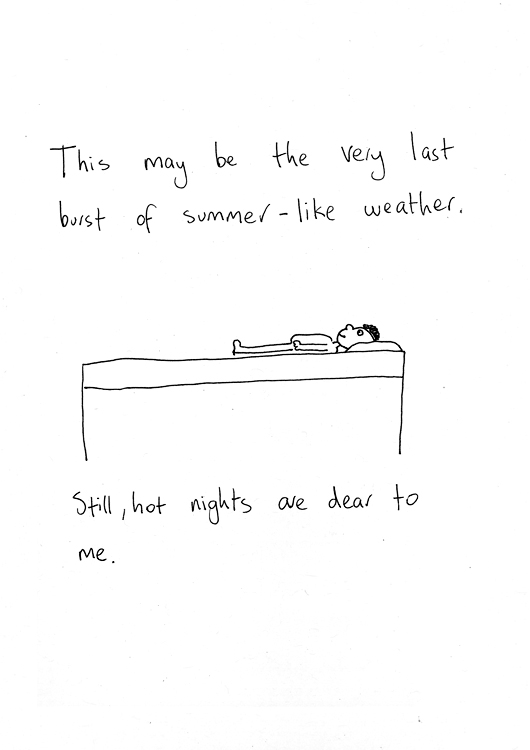 This may be the very last
burst of summer-like weather.
Still, hot nights are dear to
me.